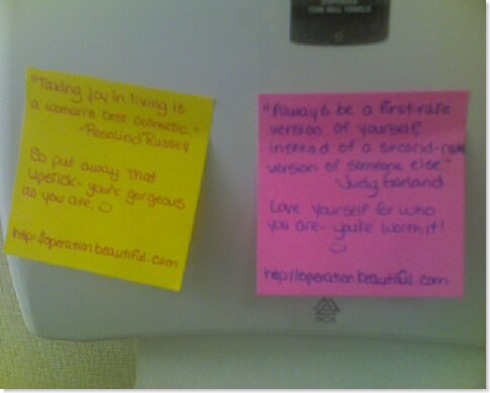 "Taking joy in living is
a woman's best cosmetic."
-Rosalind Russell
So put away that
lipstick- you're gorgeous
as you are.
http://operationbeautiful.com
"Always be a first-rate
version of yourself,
instead of a second-rate
version of someone else."
-Judy Garland
Love yourself for who
you are- you're worth it!
http://operationbeautiful.com